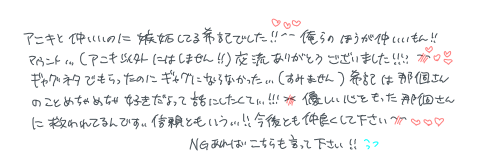 アニキと仲いいのに嫉妬してる希記でした!!~俺らのほうが仲いいもん!!
マウント…(アニキ以外にはしません!!)交流ありがとうございました!!!~
ギャグネタでもらったのにギャグにならなかった…(すみません)希記は那個さん
のことめちゃめちゃ好きだなって話にしたくて…!!! 優しい心をもった那個さん
に救われてるんです…信頼ともいう…!!今後とも仲良くして下さい~
NGあればこちらも言って下さい!!